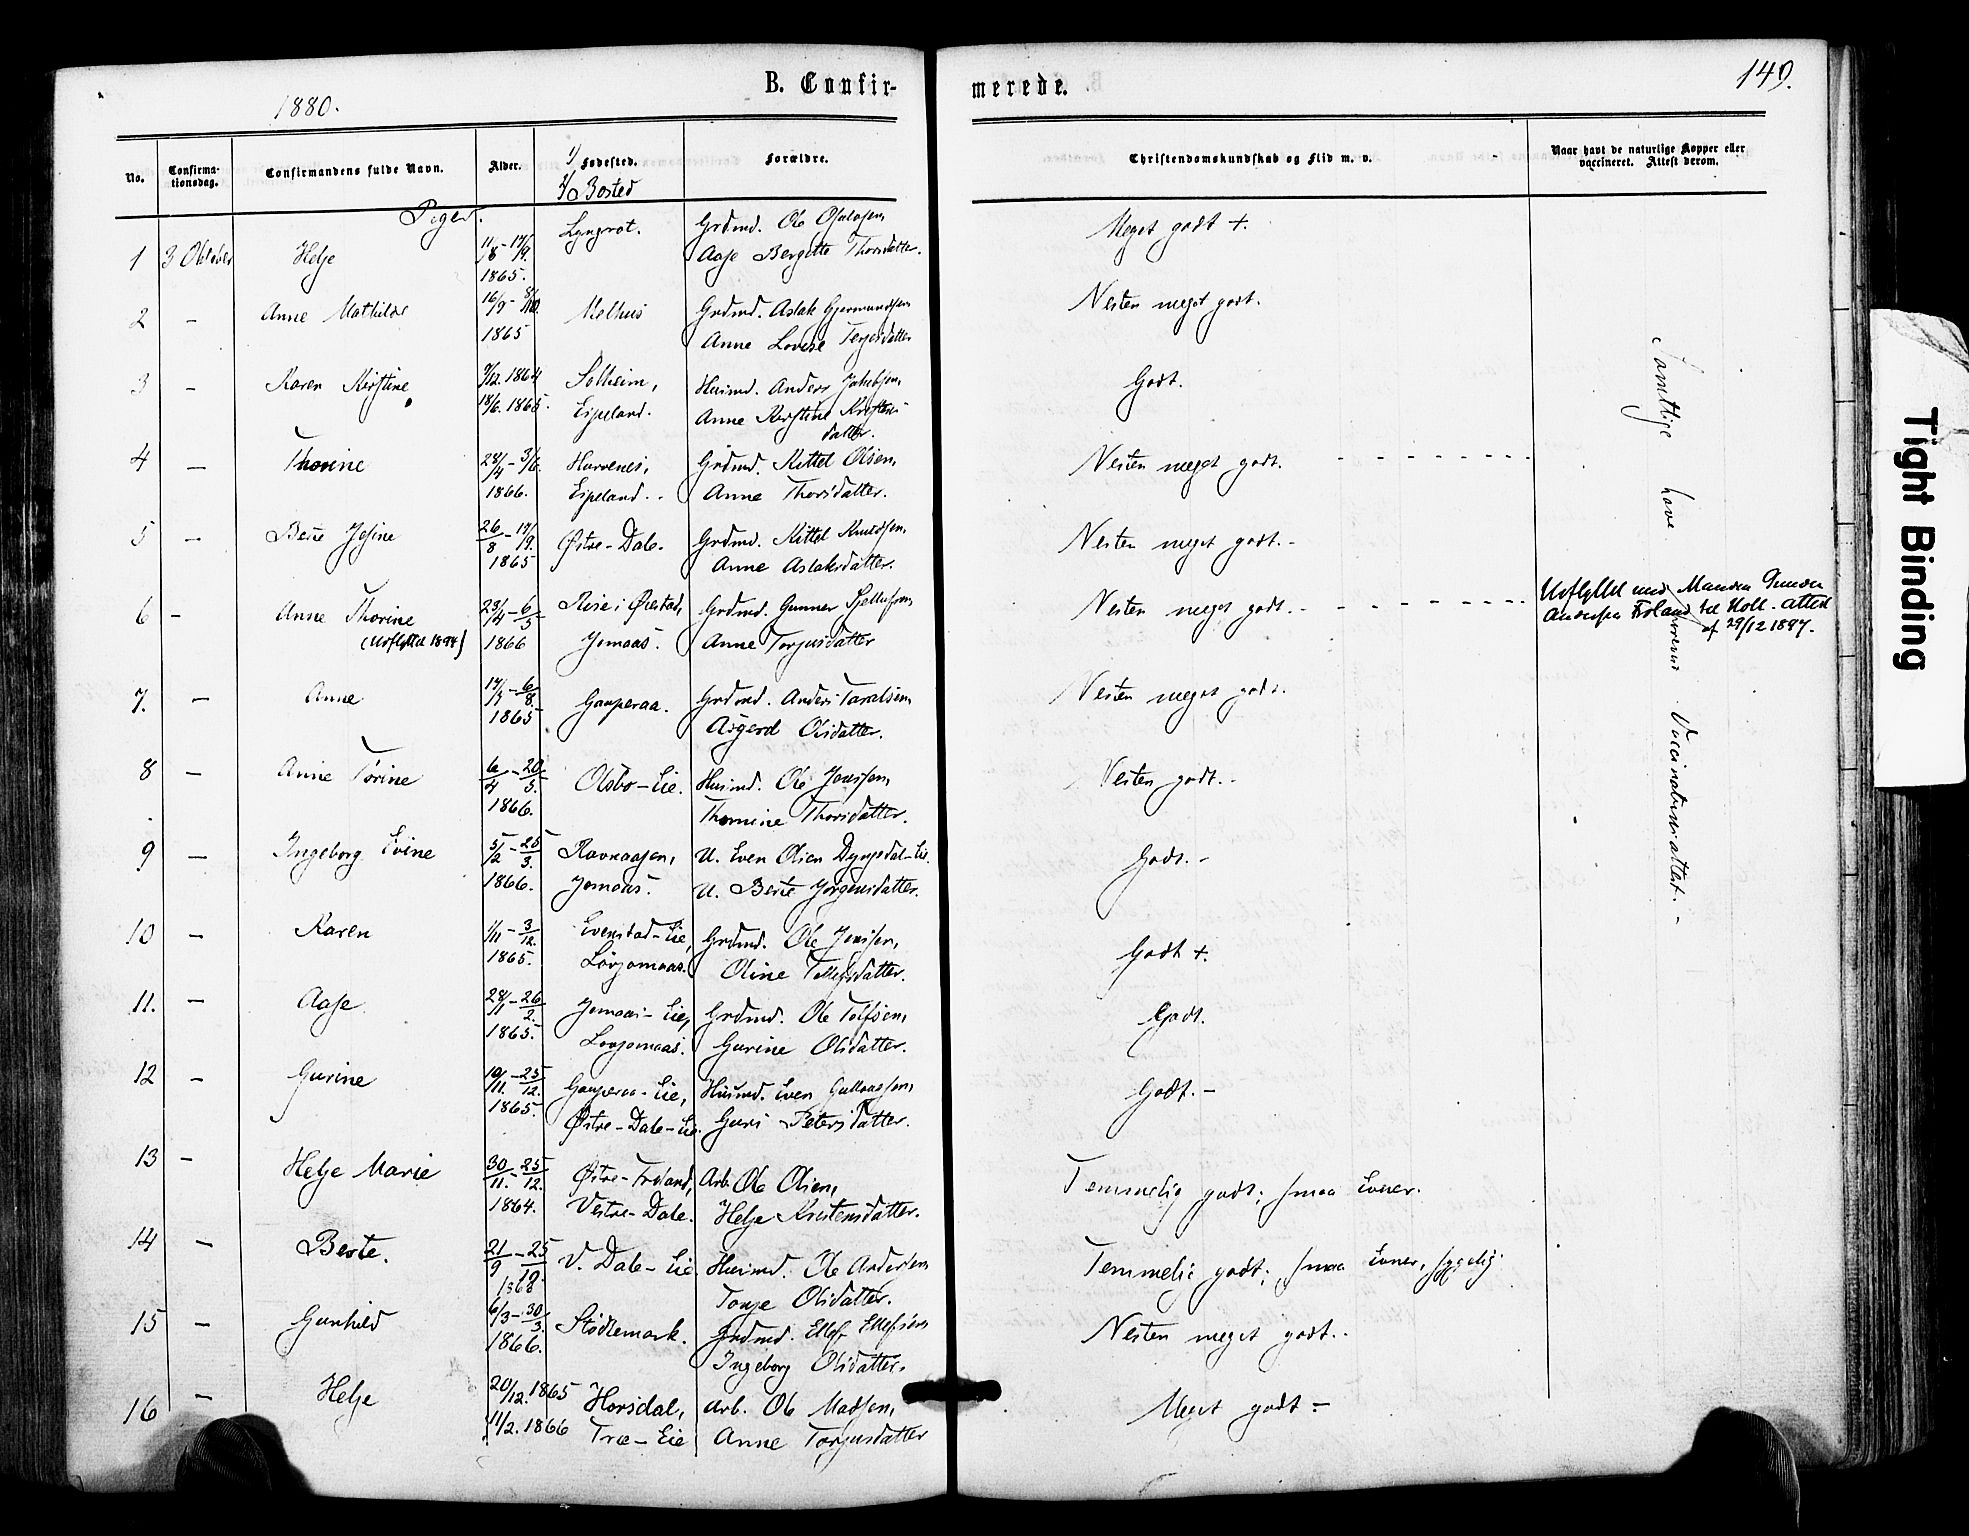 B. Confir-
merede.
149.
1880.
No.
Confirma-
tionsdag.
Confirmandens fulde Navn.
Alder.
1/ Fødested.
2/ Bosted
Forældre.
Christendomskundskab og Flid m. v.
Naar havt de naturlige Kopper eller
vaccineret. Attest derom.
Piger.
1 3 Oktober Helje 11/8 - 17/9. 1865. Lyngrot. Grdmd. Ole
Aase Bergitte Thorsdatter. Meget godt +.
2 - Anne Mathilde 16/9 - 8/10. 1865 Melhus Grdmd. Aslak Gjermundsen
Anne Lovise Terjesdatter Nesten meget godt.
3 - Karen Kirstine 7/12. 1864 18/6. 1865. Solheim, Eipeland. Husmd. Anders Jakobsen,
Anne Kirstine
datter. Godt.
4 - Thorine 28/4 - 3/6. 1866. Eipeland. Grdmd. Kittel Olsen,
Anne Thorsdatter. Nesten meget godt.
5 - Berte Josine 26/8 - 17/9. 1865 Østre-Dale. Grdmd. Kittel Knudsen,
Anne Aslaksdatter. Nesten meget godt.-
6 - Anne Thorine (Udflyttet 1897) 23/4 - 6/5 1866 Rise i Øiestad, Jomaas. Grdmd. Gunner
Anne Torjusdatter Nesten meget godt.
Udflyttet med Manden Gunder
Andersen Froland til Holt. Attest
af 29/12 1897.
7. - Anne 17/7 - 6/8. 1865 Gauperaa. Grdmd. Anders Taralsen,
Asgerd Olsdatter. Nesten meget godt.
8 - Anne Torine 6/4 - 20/5. 1866. Olsbo-Eie. Husmd. Ole Jenssen,
Thomine Thorsdatter. Nesten godt.-
9 - Ingeborg Evine 5/2 - 25/3. 1866. Ravnaasen, Jomaas. U. Even Olsen Dyngsdal-Eie.
U. Berte Jørgensdatter. Godt.-
10 - Karen 1/11 - 3/12. 1865. Evenstad-Eie, Lorjomaas. Grdmd. Ole Jenssen,
Oline Tellefsdatter. Godt +.
11. - Aase 28/1 - 26/2. 1865. Jomaas-Eie, Lorjomaas. Grdmd. Ole Tolfsen,
Gurine Olsdatter. Godt.
12 - Gurine 19/11 - 25/12. 1865. Gauperaa-Eie, Østre-Dale-Eie. Husmd. Even Gullaugsen,
Guri Petersdatter. Godt.-
13 - Helje Marie 30/11. - 25/12. 1864. Østre-Froland, Vestre-Dale. Arb. Ole Olsen,
Helje Kristensdatter. Temmelig godt; smaa Evner.
14 - Berte. 21/9 - 25/10. V. Dale-Eie Husmd. Ole Andersen
Tonje Olsdatter. Temmelig godt; smaa Evner, sygelig.
15 - Gunhild 6/3 - 30/3. 1866. Stødlemark. Grdmd. Ellef Ellefsen
Ingeborg Olsdatter. Nesten meget godt..
16 - Helje 20/12. 1865 11/2. 1866 Horsdal, Træ-Eie Arb. Ole Madsen,
Anne Torjusdatter Meget godt -
Samtlige have Vaccinationsattest.-
Tight Binding